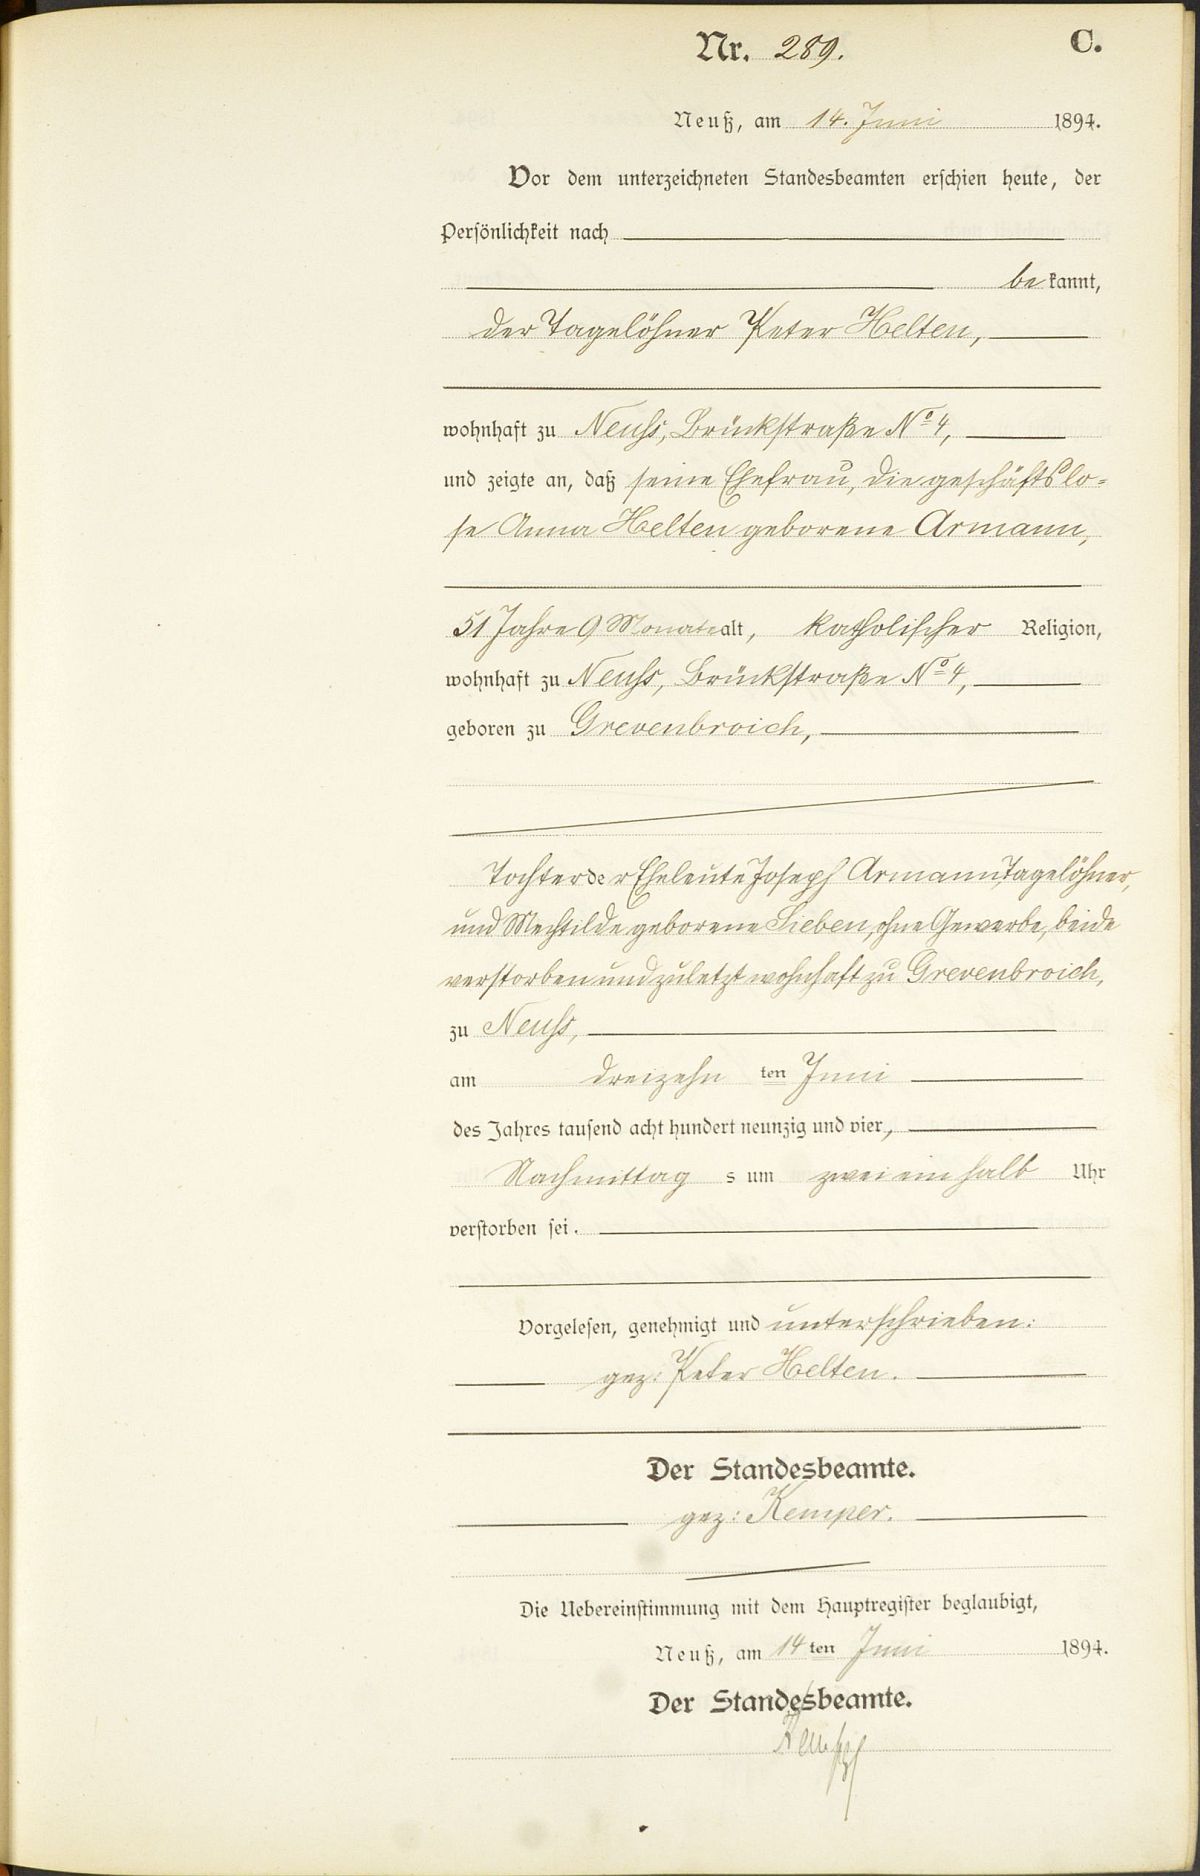 Nr. 289. C.
Neuß, am 14. Juni 1894.
Vor dem unterzeichneten Standesbeamten erschien heute, der
Persönlichkeit nach
be kannt,
der Tagelöhner Peter Helten,
wohnhaft zu Neuss, Brückstraße No 4,
und zeigte an, daß seine Ehefrau, die geschäftslo-
se Anna Helten geborene Armann,
51 Jahre 9 Monate alt, katholischer Religion,
wohnhaft zu Neuss, Brückstraße No 4,
geboren zu Grevenbroich,
Tochter der Eheleute Joseph Armann, Tagelöhner,
und Mechtilde geborene Lieben, ohne Gewerbe, beide
verstorben und zuletzt wohnhaft zu Grevenbroich,
zu Neuss,
am dreizehn ten Juni
des Jahres tausend acht hundert neunzig und vier,
Nachmittag s um zwei ein halb Uhr
verstorben sei.
Vorgelesen, genehmigt und unterschrieben:
gez: Peter Helten.
Der Standesbeamte.
gez: Kemper.
Die Uebereinstimmung mit dem Hauptregister beglaubigt,
Neuß, am 14 ten Juni 1894.
Der Standesbeamte.
Kemper